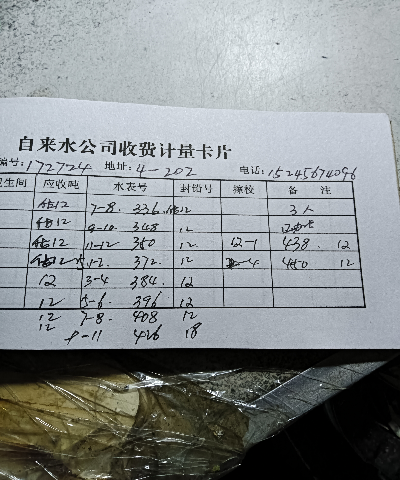 自来水公司收费计量卡片
编号: 172724 地址: 4-202 电话: 15245674096
卫生间 应收吨 水表号 封铅号 换校 备 注
估12 7-8. 336 估12 3人
估12 9-10 348 12
估12 11-12 360 12. 12-1 438. 12
估12 1-2. 372. 12 2-4 450 12
12 3-4 384. 12
12 5-6. 396 12
12 7-8. 408 12
12 9-11 426 18